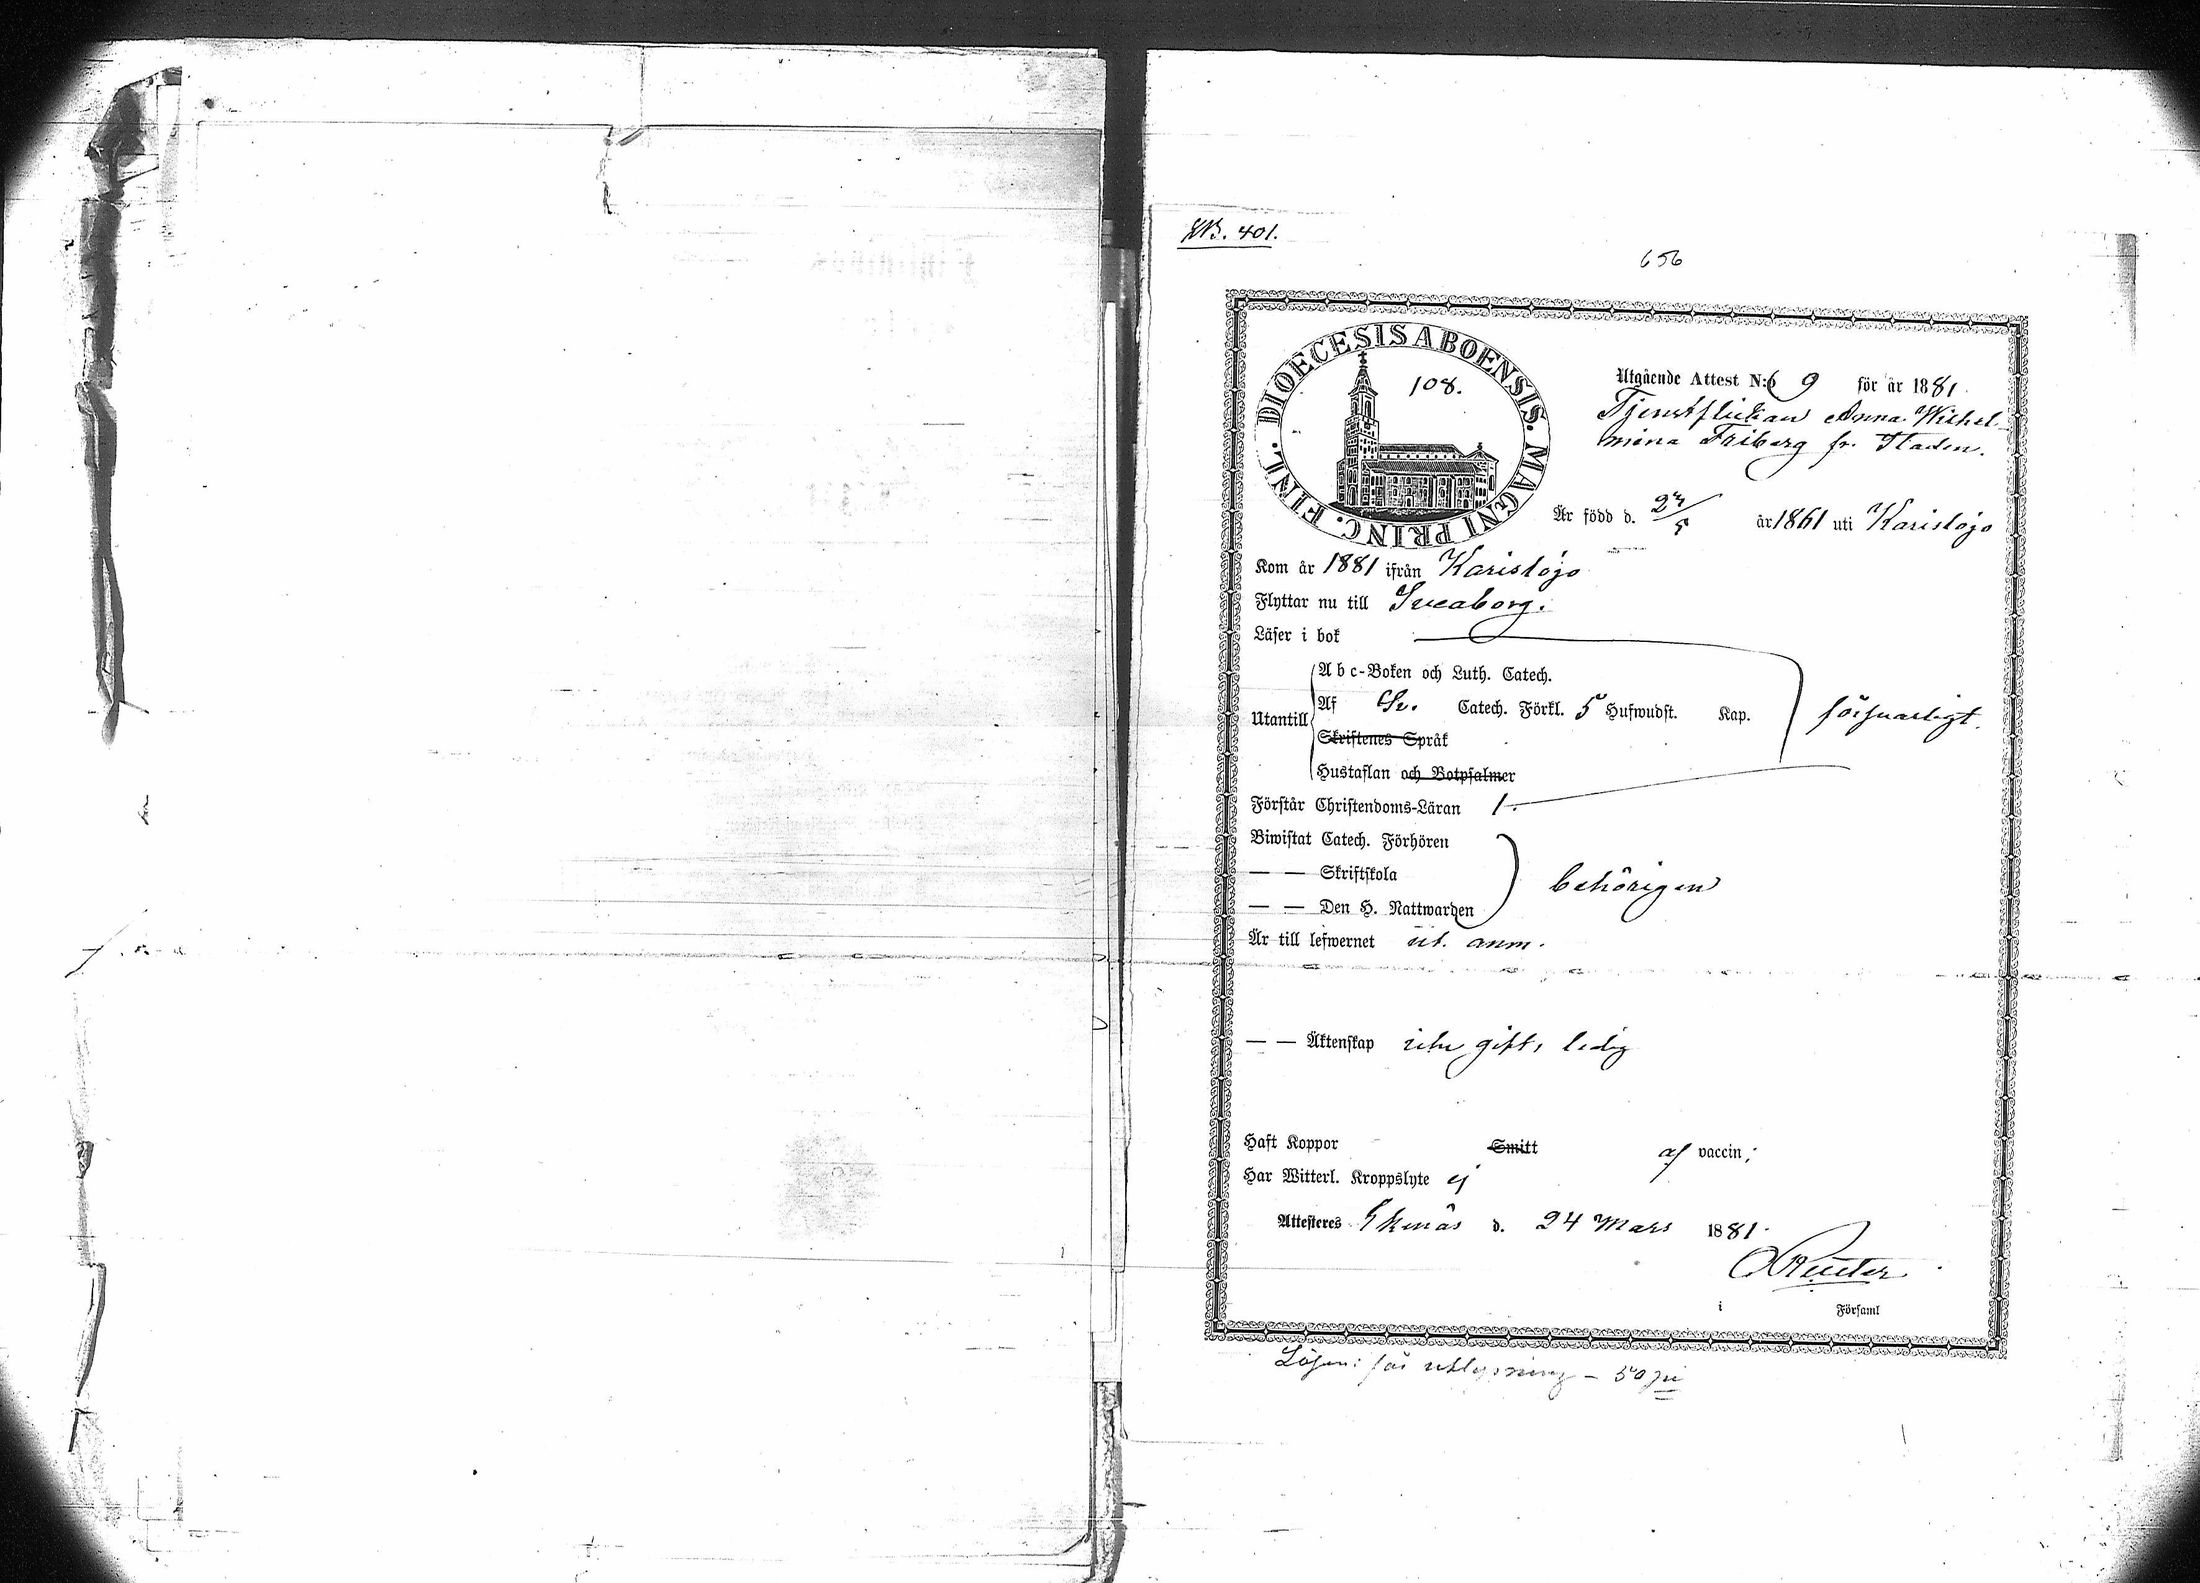 KB. 401.
656
DIOECESIS ABOENSIS. MAGNI PRINC. FINL.
108.
Utgående Attest N:o 69 för år 1881.
Tjenstflickan Anna Wilhel-
mina Friberg fr. Staden.
Är född d. 27/5 år 1861 uti Karislojo
Kom år 1881 ifrån Karislojo
Flyttar nu till Sveaborg.
Läser i bok
Utantill
A b c-Boken och Luth. Catech.
Af Sv. Catech. Förkl. 5 Hufwudst. Kap.
försvarligt.
Skriftenes Språk
Hustaflan och Botpsalmer
Förstår Christendoms-Läran 1.
Biwistat Catech. Förhören
— — Skriftskola
behörigen
— — Den H. Nattwarden
Är till lefwernet ut. anm.
— — Äktenskap icke gift, ledig
Haft Koppor Smitt af vaccin;
Har Witterl. Kroppslyte ej
Attesteres Ekenäs d. 24 Mars 1881.
Reuter
i Församl
Lösen: för utlysning — 50 pi